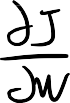 ∂J
∂W